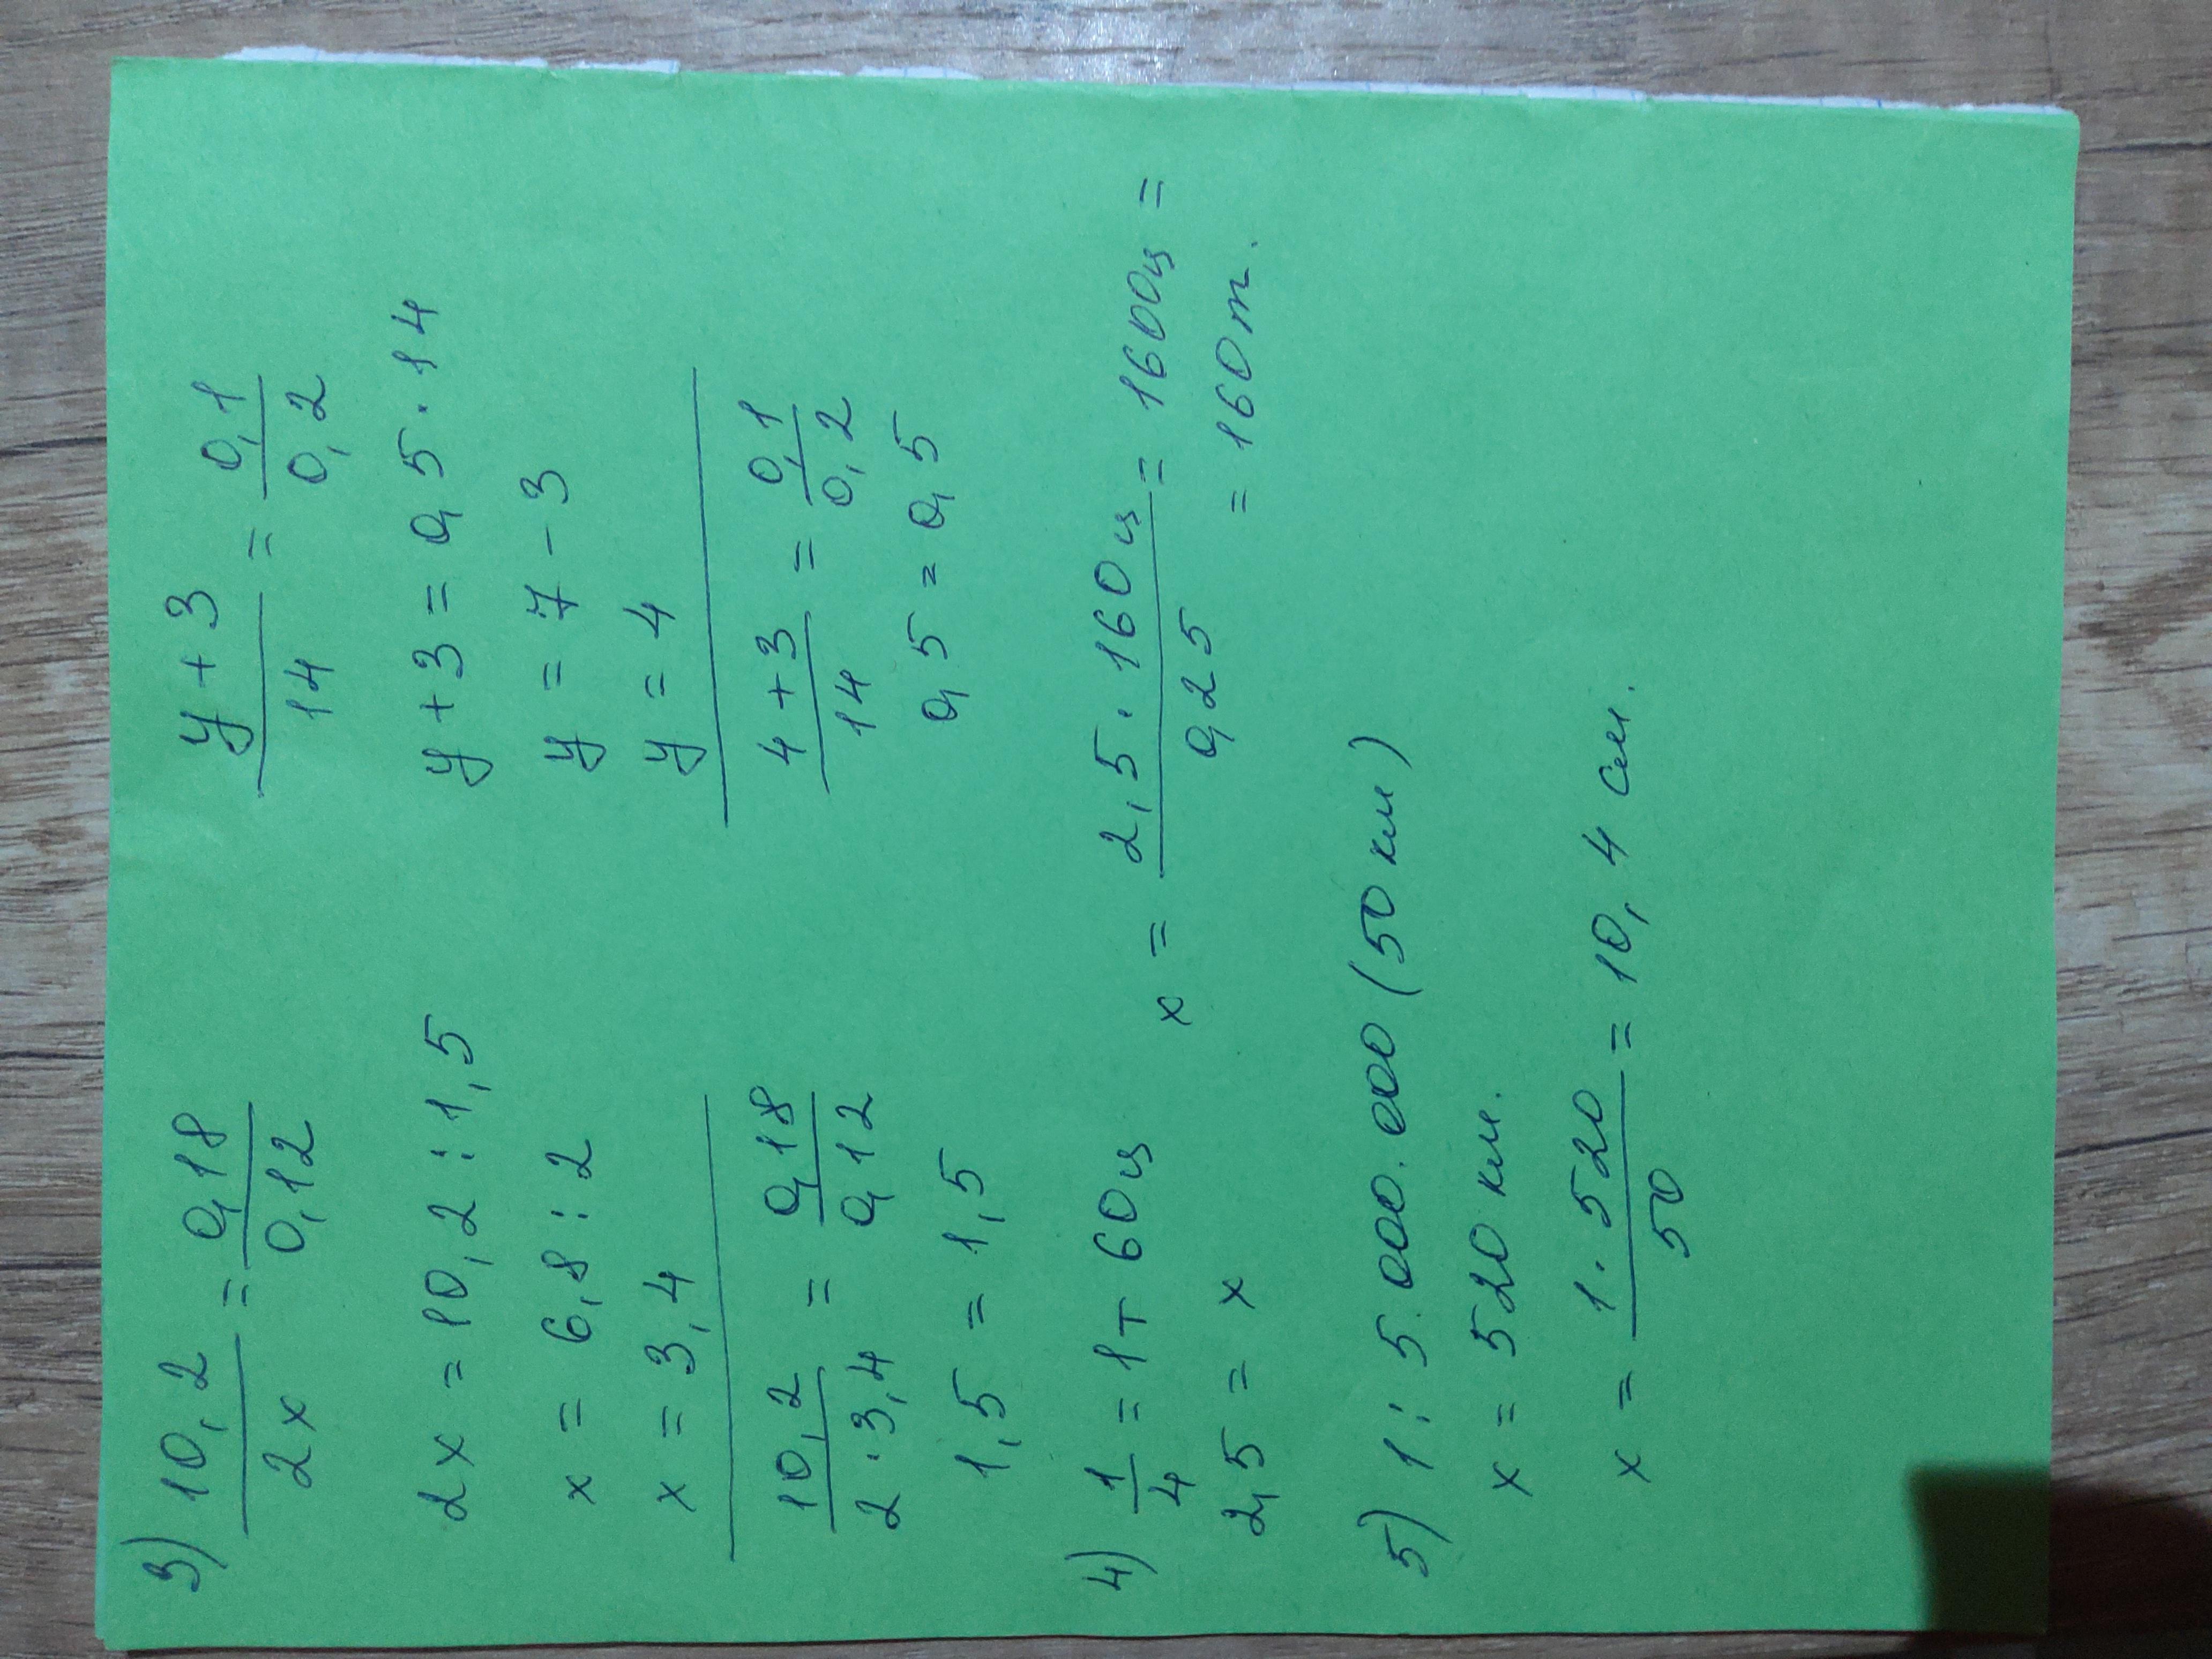 3) 10,2/2x = 0,18/0,12
2x = 10,2 : 1,5
x = 6,8 : 2
x = 3,4
10,2/2·3,4 = 0,18/0,12
1,5 = 1,5
y+3/14 = 0,1/0,2
y+3 = 0,5·14
y = 7-3
y = 4
4+3/14 = 0,1/0,2
0,5 = 0,5
4) 1/4 = 1т 60ц
2,5 = x
x = 2,5·160ц/0,25 = 1600ц =
= 160т.
5) 1 : 5.000.000 (50км)
x = 520км.
x = 1·520/50 = 10,4 см.